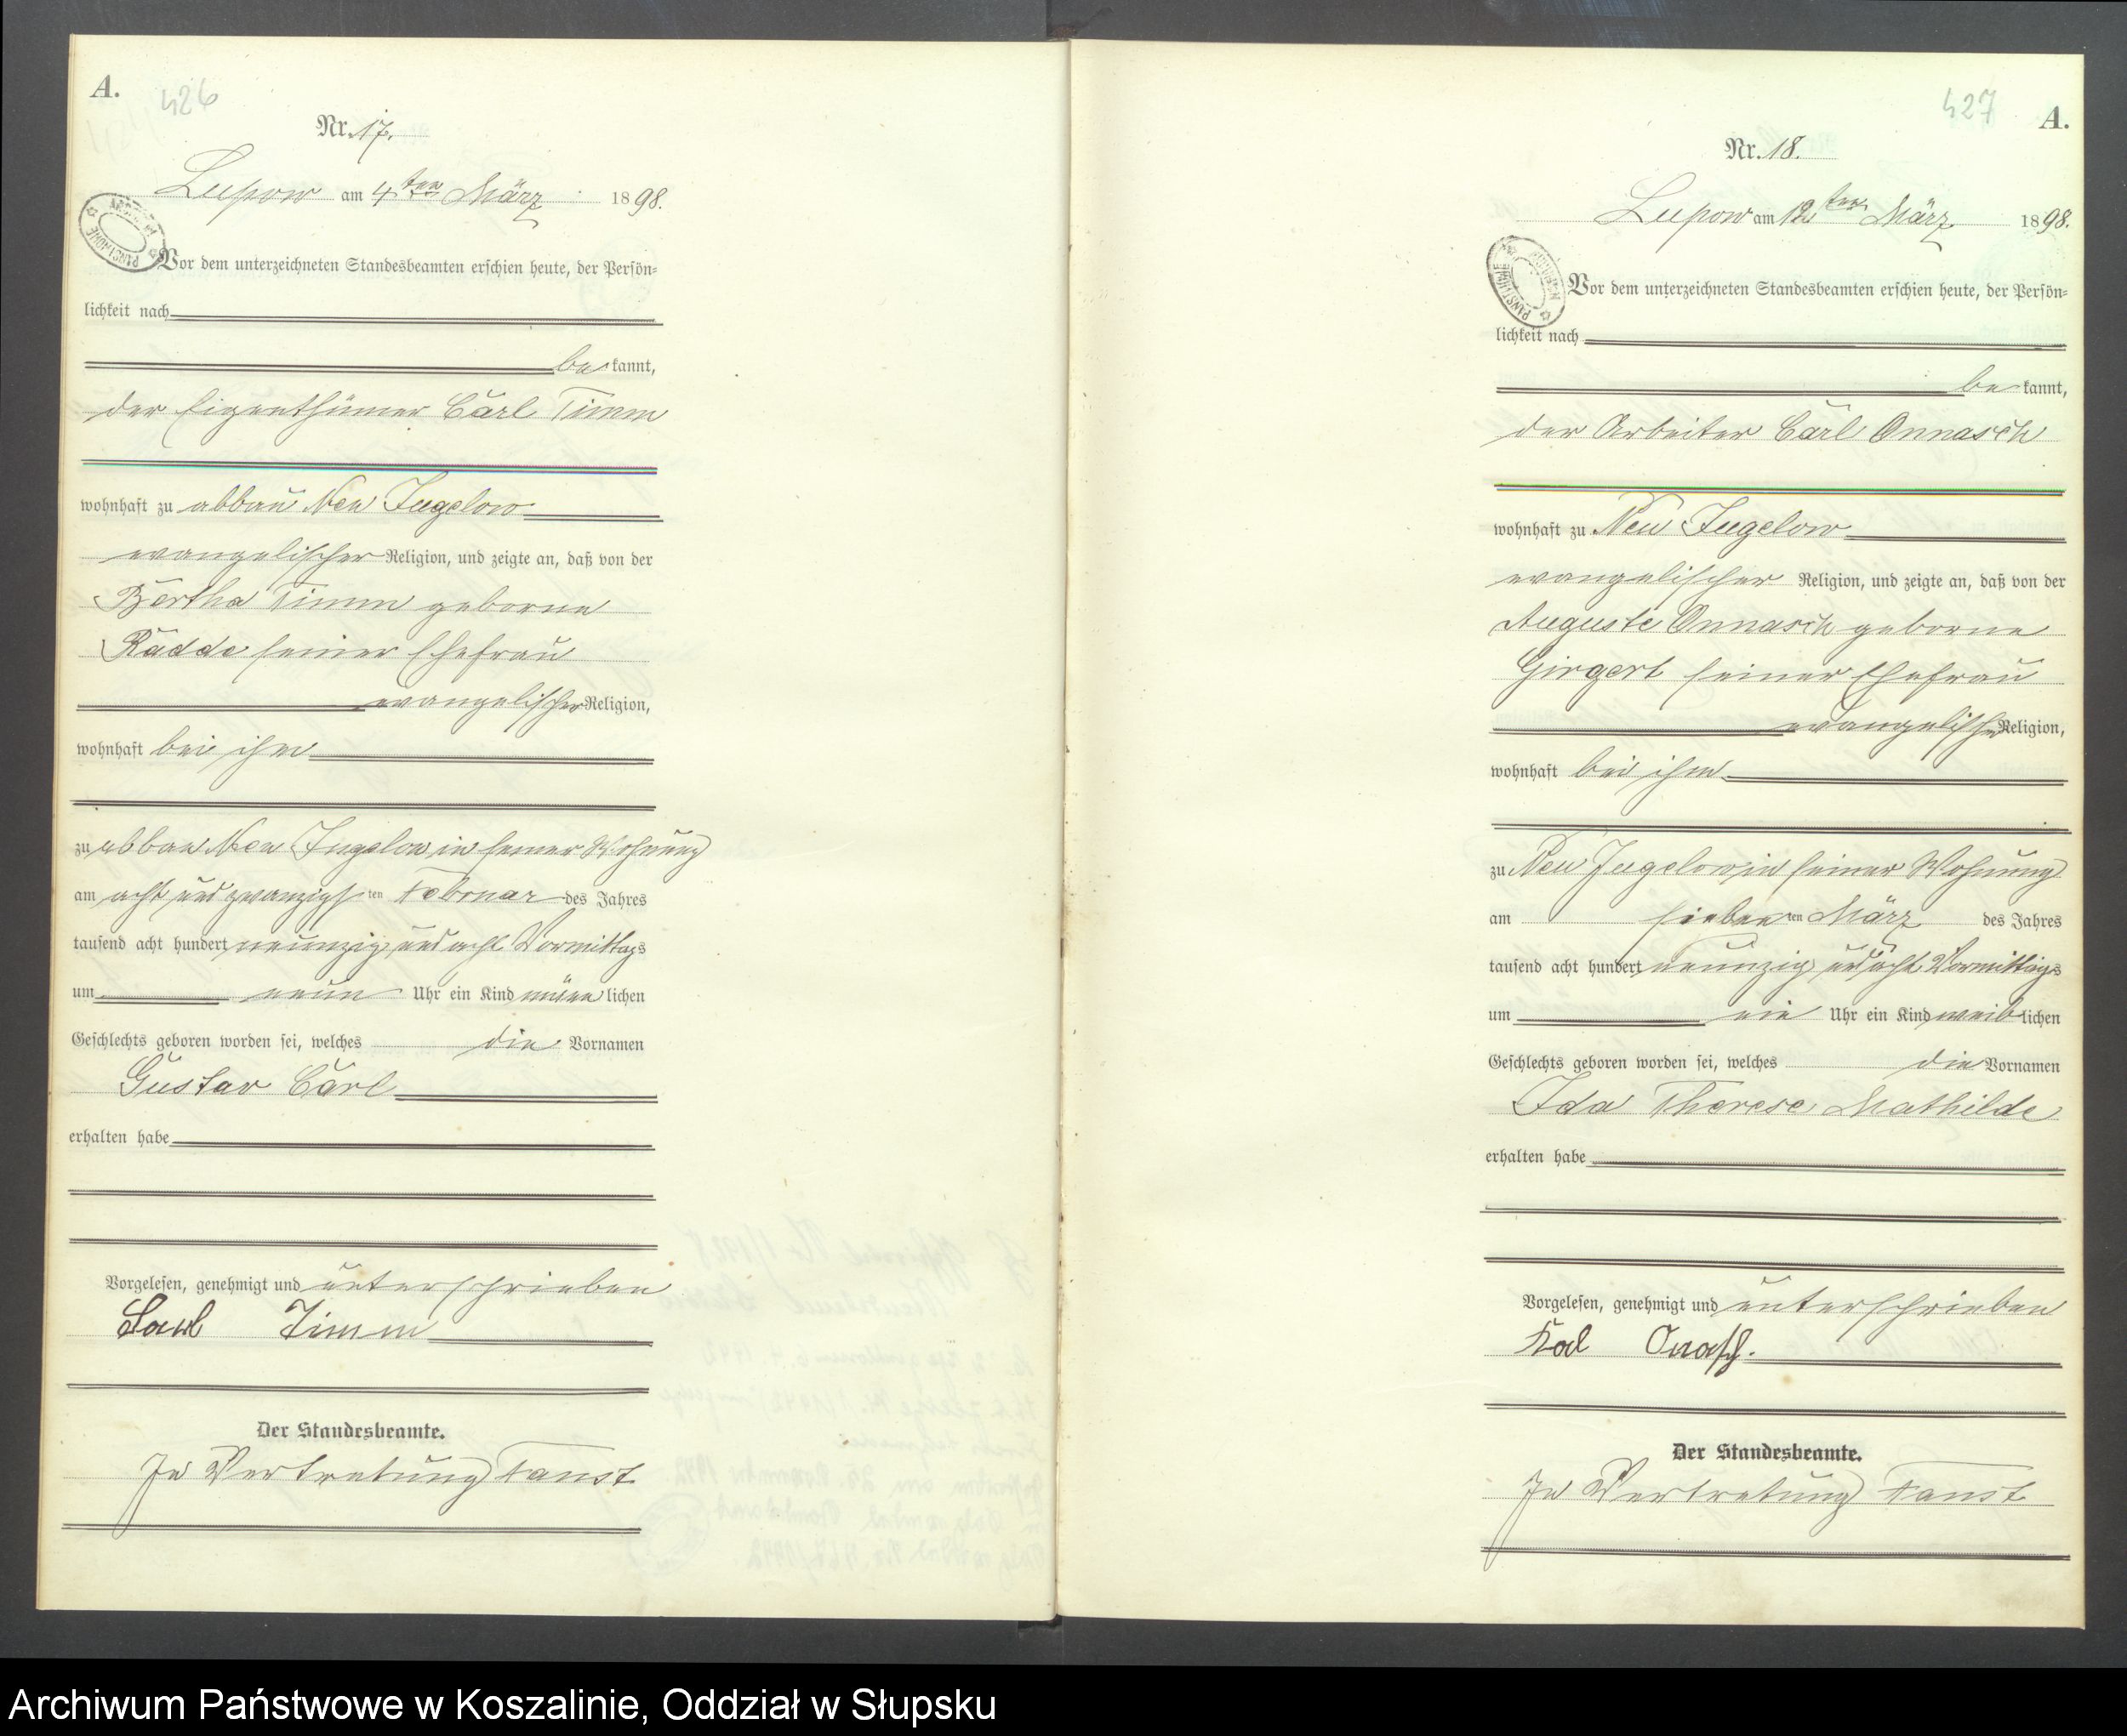 A.
426
Nr. 17.
Lupow am 4ten März 1898.
Vor dem unterzeichneten Standesbeamten erschien heute, der Persön=
lichkeit nach
bekannt,
der Eigenthümer Carl Timm
wohnhaft zu abbau Neu Jugelow
evangelischer Religion, und zeigte an, daß von der
Bertha Timm geborne
Radde seiner Ehefrau
evangelischer Religion,
wohnhaft bei ihm
zu abbau Neu Jugelow in seiner Wohnung
am acht und zwanzigsten Februar des Jahres
tausend acht hundert neunzig und acht Vormittags
um neun Uhr ein Kind männlichen
Geschlechts geboren worden sei, welches die Vornamen
Gustav Carl
erhalten habe
Vorgelesen, genehmigt und unterschrieben
Carl Timm
Der Standesbeamte.
In Vertretung Faust
427
A.
Nr. 18.
Lupow am 12ten März 1898.
Vor dem unterzeichneten Standesbeamten erschien heute, der Persön=
lichkeit nach
bekannt,
der Arbeiter Carl Onnasch
wohnhaft zu Neu Jugelow
evangelischer Religion, und zeigte an, daß von der
Auguste Onnasch geborne
Girgert seiner Ehefrau
evangelischer Religion,
wohnhaft bei ihm
zu Neu Jugelow in seiner Wohnung
am siebenten März des Jahres
tausend acht hundert neunzig und acht Vormittags
um ein Uhr ein Kind weiblichen
Geschlechts geboren worden sei, welches die Vornamen
Ida Therese Mathilde
erhalten habe
Vorgelesen, genehmigt und unterschrieben
Kal Onasch.
Der Standesbeamte.
In Vertretung Faust
Archiwum Państwowe w Koszalinie, Oddział w Słupsku